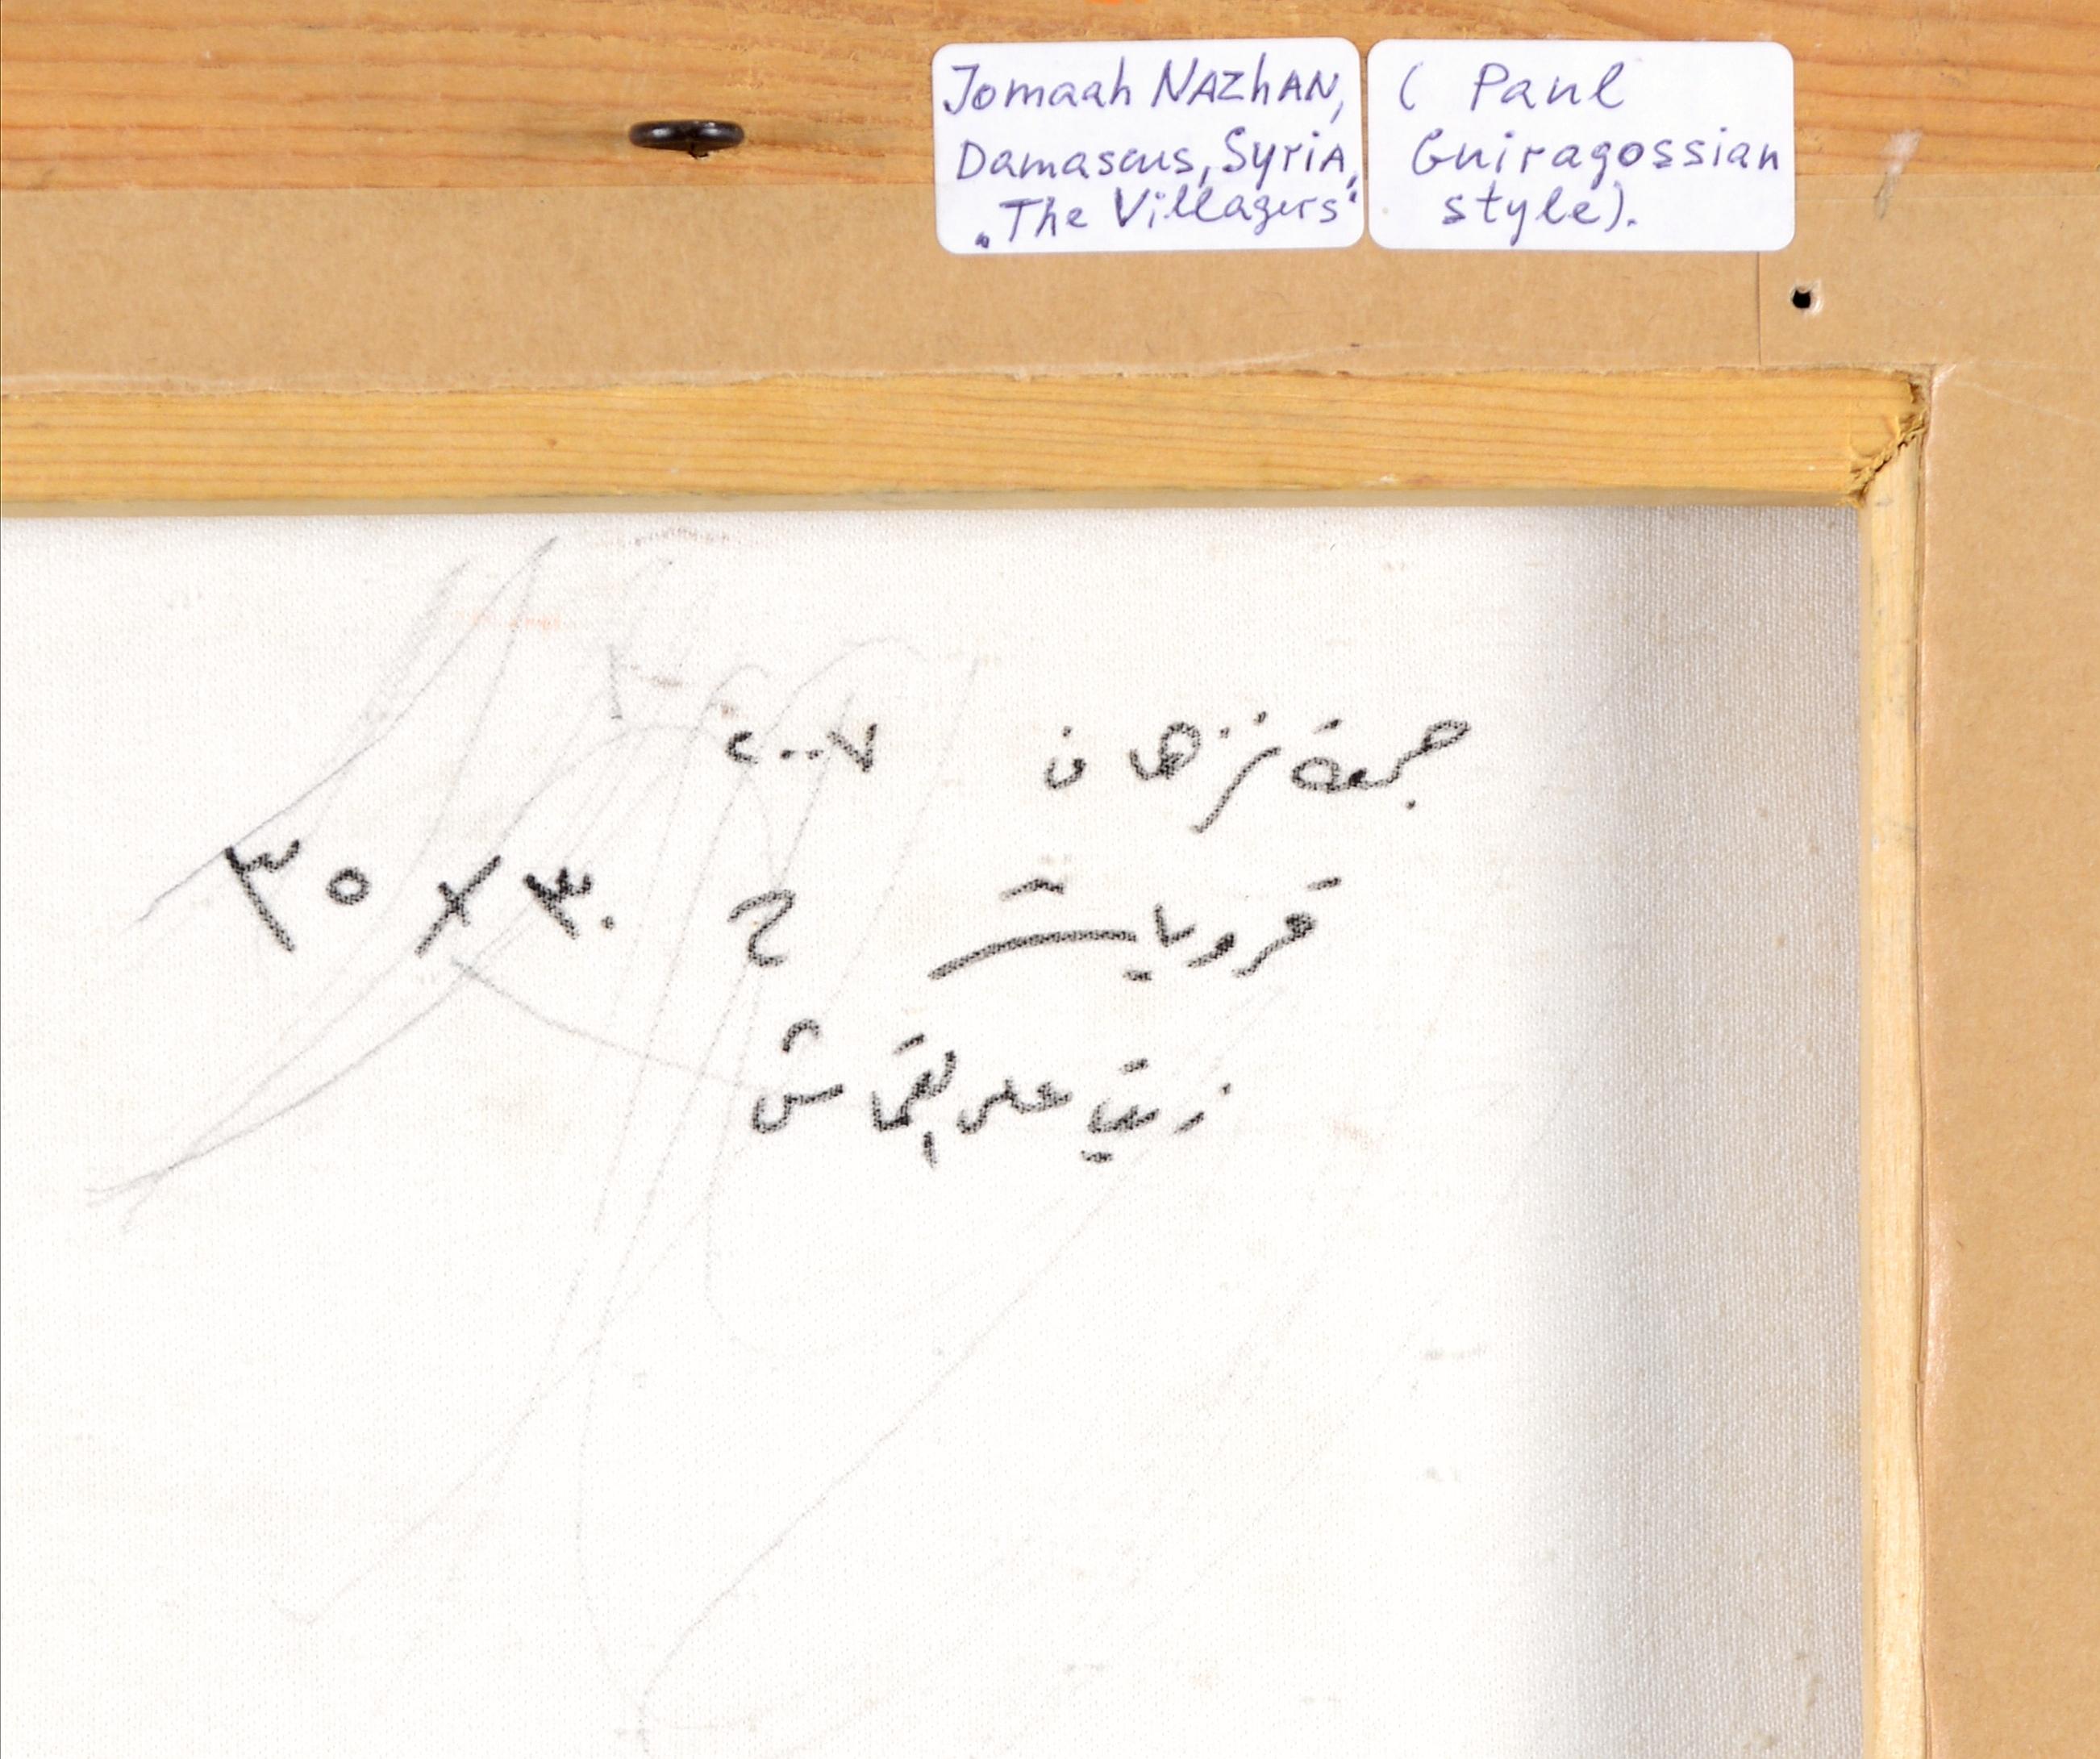 Jomaah NAZhAN,
Damascus, Syria,
„The Villagers“
( Paul
Guiragossian
style).
جمعة نزهان ٢٠٠٧
قرويات ح ٣٠ × ٣٥
زيت على القماش